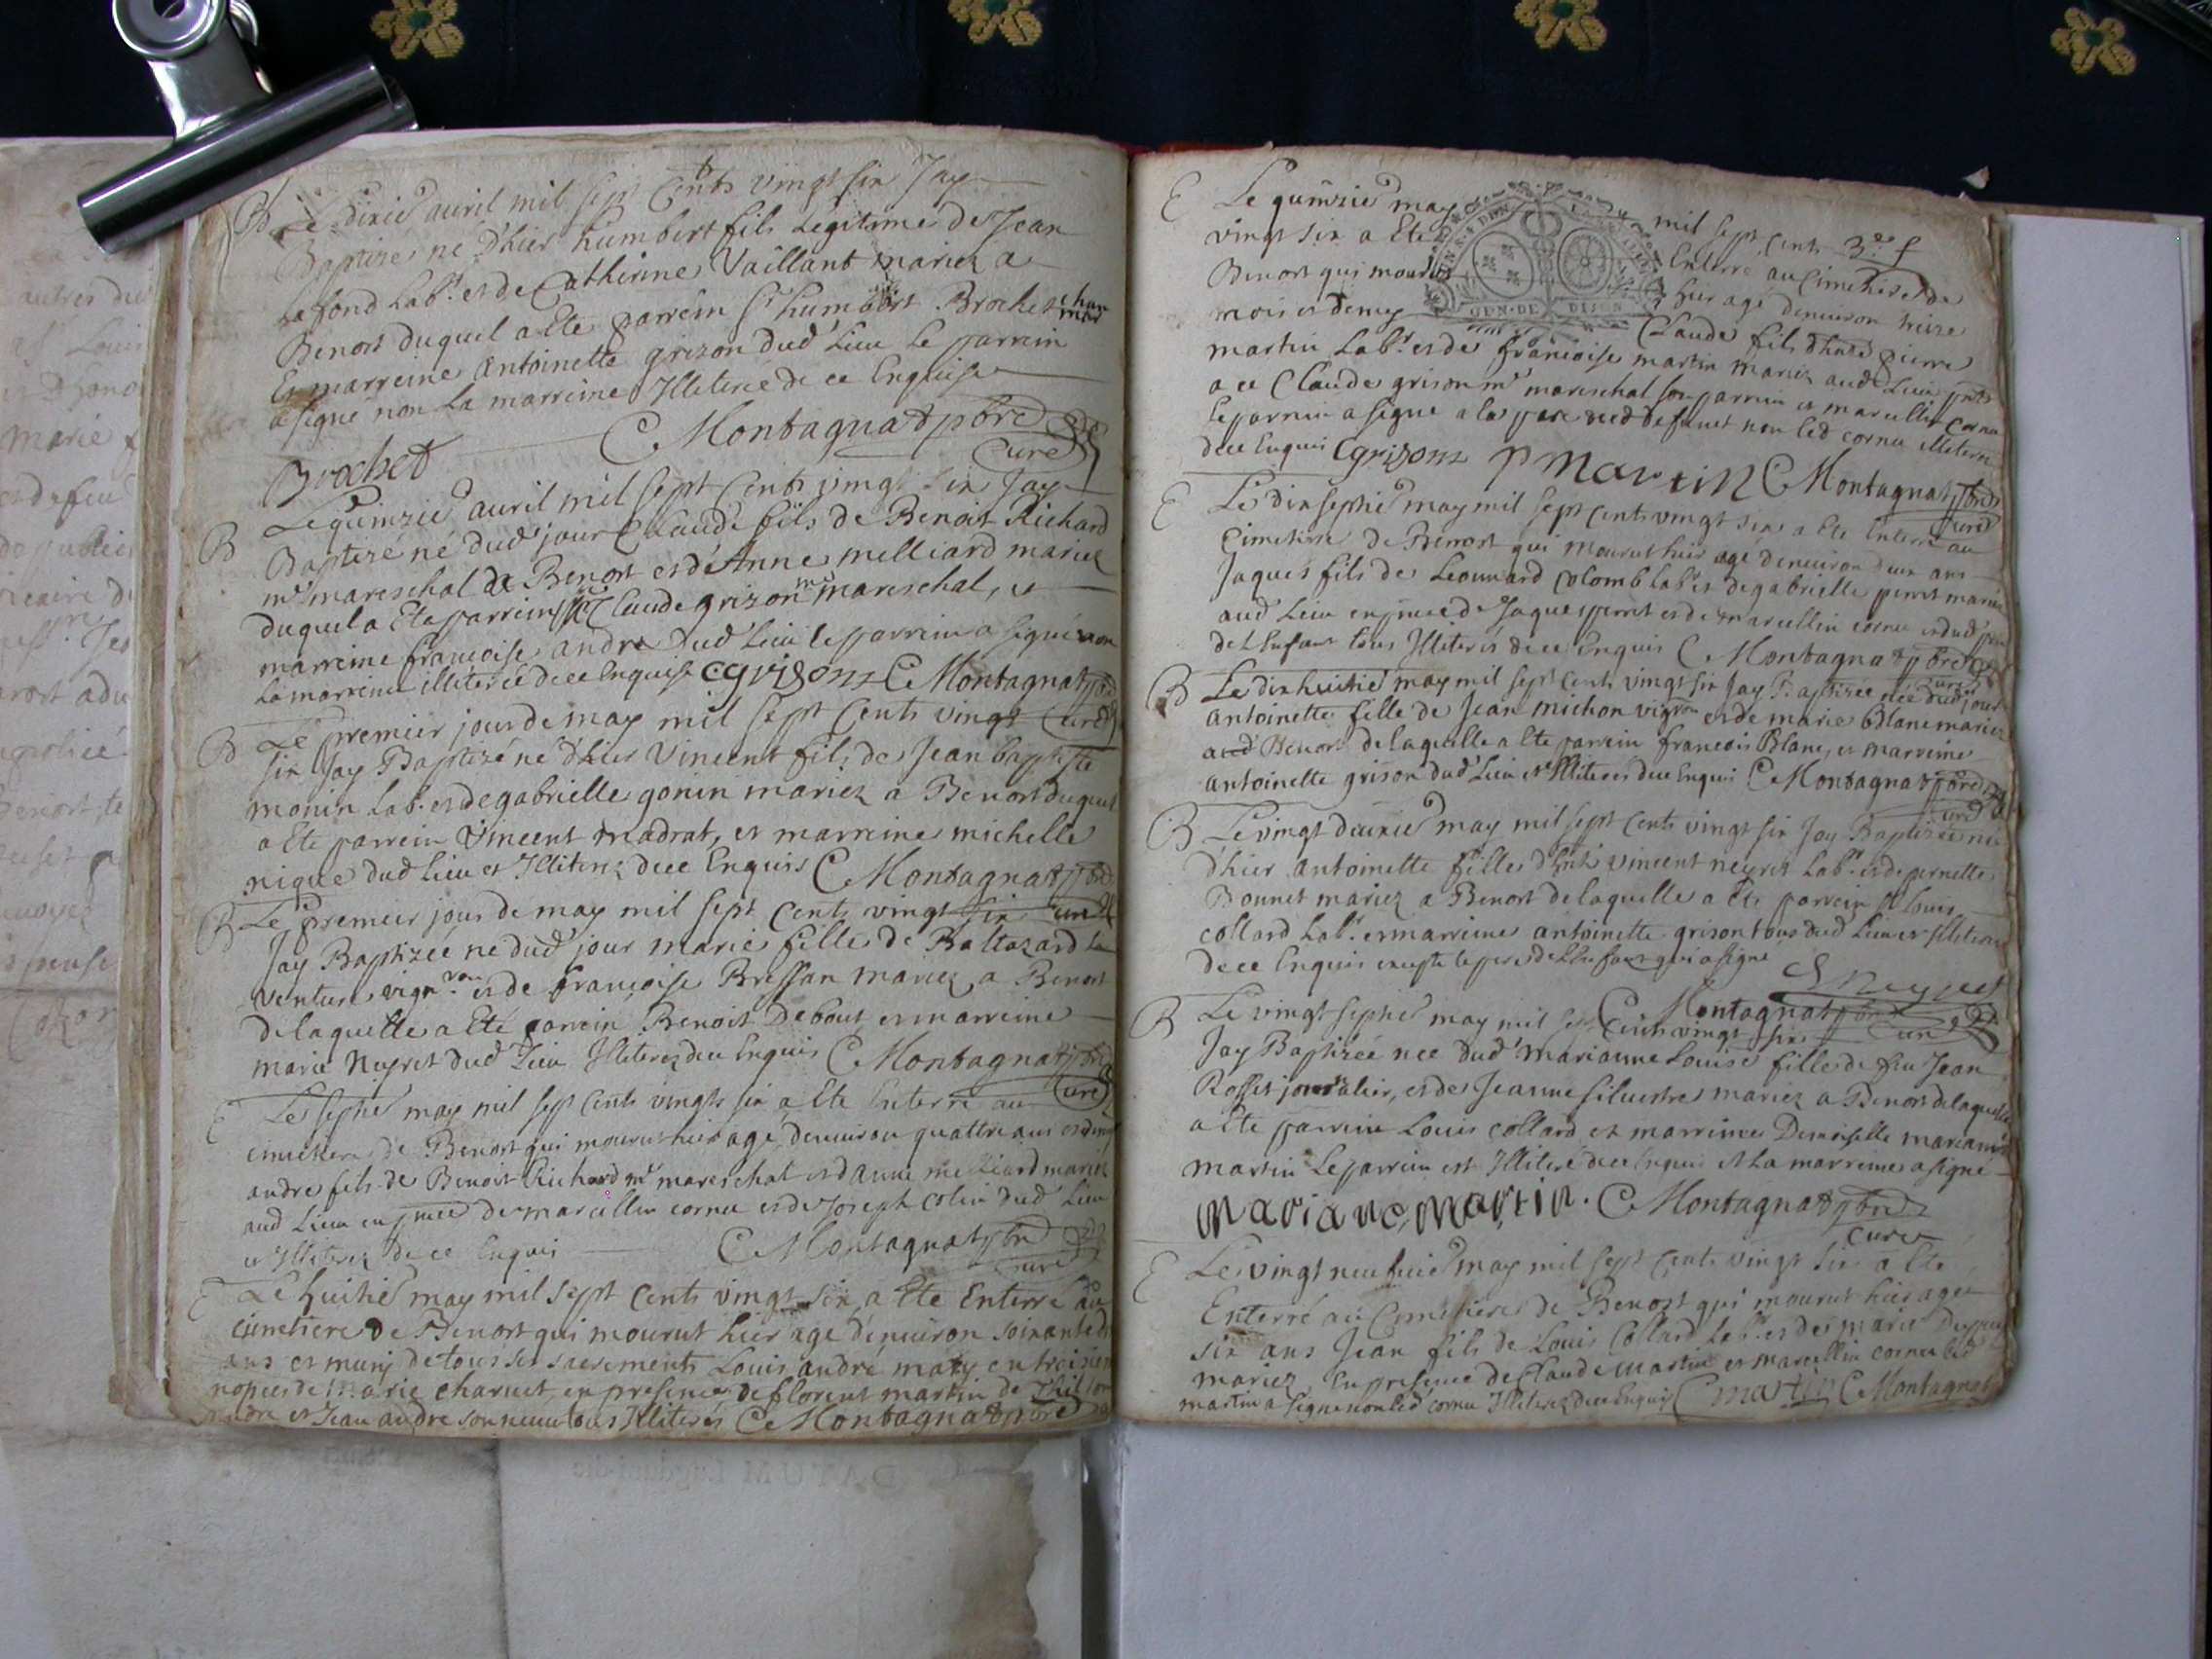 B Le dixie avril mil sept Cents vingt six Jay
Baptizé ne d'hier humbert fils Legitime de Jean
Lafond Labr. et de Catherine Vaillant mariez a
Benost duquel a Ete parrein Sr humbert Brochet
Et marreine Antoinette grizon dud Lieu Le parrein
a signé non La marreine Illiterée de ce Enquise
C Montagnat pbre
Brochet curé
B Le quinzie avril mil sept Cents vingt six Jay
Baptizé né dud jour Claude fils de Benoit Richard
mr mareschal a Benost et d'Anne melliard mariez
duquel a Ete parrein Claude grizon mr mareschal, et
marreine francoise andre dud Lieu le parrein a signé non
La marreine illiterée de ce Enquise cgrison C Montagnat pbre
curé
B Le premier jour de may mil sept Cents vingt
six Jay Baptizé né d'hier Vincent fils de Jean baptiste
monin Lab. et de gabrielle gonin mariez a Benost duquel
a Ete parrein Vincent madrat, et marreine michelle
nique dud Lieu et Illiterez de ce Enquis C Montagnat pbre
curé
B Le premier jour de may mil sept Cents vingt six
Jay Baptizée ne dud jour marie fille de Baltazard La
venture vignron et de françoise Bressan mariez a Benost
de laquelle a Eté parrein Benoit Debout et marreine
marie Neyret dud Lieu Illiterez de ce Enquis C Montagnat pbre
curé
E Le septie may mil sept Cents vingts six a Ete Enterré au
cimetiere de Benost qui mourut hier agé denviron quattre ans et demy
andre fils de Benoit Richard mr mareschal et d'anne melliard mariez
aud Lieu en pnce de marcellin cornu et de Joseph Colin dud Lieu
et Illiterez de ce Enquis C Montagnat pbre
curé
E Le huitie may mil sept Cents vingt six a Ete Enterré au
cimetiere de Benost qui mourut hier agé d'enuiron soixante
ans et muny de tous ses sacrements Louis andré mary en troisiem
nopces de Marie charuet en presence de florent martin de
andre et Jean andre son neveu tous Illiterés C Montagnat pbre
E Le quinzie may mil sept Cents
vingt six a Ete Enterré au Cimetiere de
Benost qui mourut hier agé denuiron treize
mois et demy Claude fils d'hte pierre
GEN · DE DIJON
martin Labr. et de francoise martin mariez aud Lieu pnts
a ce Claude grison mr mareschal son parrein et marcellin cornu
le parrein a signé a le pere dud defunct non led cornu illiteré
de ce Enquis Cgrison P Martin C Montagnat pbre
curé
E Le dix septie may mil sept cents vingt six a Ete Enterré au
Cimetiere de Benost qui mourut hier agé denuiron deux ans
Jaques fils de Leonnard Colomb labr. et de gabrielle perret mariez
aud Lieu en pnce de Jaques perret et de marcellin cornu et dud pere
de L'Enfant tous Illiterés de ce Enquis C Montagnat pbre
curé
B Le dixhuitie may mil sept cents vingt six Jay Baptizée née dud jour
Antoinette fille de Jean michon vigron et de marie Blanc mariez
aud Benost de laquelle a Ete parrein francois Blanc, et marreine
antoinette grison dud Lieu et Illiterés de ce Enquis C Montagnat pbre
curé
B Le vingt deuxie may mil sept Cents vingt six Jay Baptizée née
d'hier Antoinette fille d'hte vincent neyret Labr. et de pernette
Bonnet mariez a Benost de laquelle a Ete parrein Louis
collard Labr. et marreine antoinette grison tous dud Lieu et Illiterés
de ce Enquis excepte le pere de L'Enfant qui a signé
C Montagnat pbre curé
B Le vingt septie may mil sept Cents vingt six
Jay Baptizée née dud Marianne Louise fille de feu Jean
Rosset journalier, et de Jeanne siluestre mariez a Benost de laquelle
a Ete parrein Louis collard et marreine Demoiselle marianne
martin Le parrein est Illiteré de ce Enquis et La marreine a signé
mariane, martin. C Montagnat pbre
curé
E Le vingt neufuie may mil sept Cents vingt six a Ete
Enterré au Cimetiere de Benost qui mourut hier agé
six ans Jean fils de Louis Collard Labr. et de marie
mariez En presence de Claude martin et marcellin cornu led
martin a signé non led cornu Illiterez de ce Enquis C martin C Montagnat